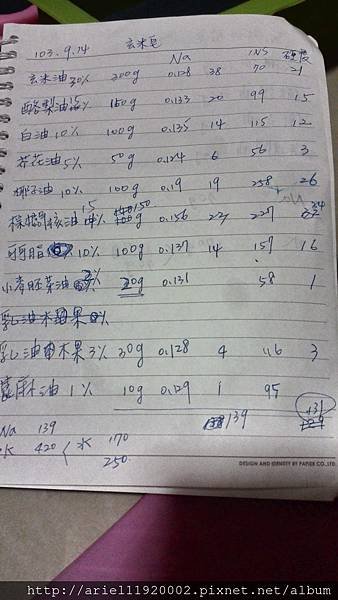 103.9.14 玄米皂
Na INS 硬度
玄米油 30% 300g 0.128 38 70 21
酪梨油 15% 150g 0.133 20 99 15
白油 10% 100g 0.135 14 115 12
芥花油 5% 50g 0.124 6 56 3
椰子油 10% 100g 0.19 19 258 26
棕櫚核油 15% 150 0.156 227 34
牛脂 10% 100g 0.137 14 157 16
小麥胚芽油 2% 20g 0.131 58 1
乳油木果 3% 30g 0.128 4 116 3
蓖麻油 1% 10g 0.129 1 95
139 131
Na 139
水 420 水 170
250
DESIGN AND IDENTITY BY PAPIER CO., LTD.
http://ariel11920002.pixnet.net/album